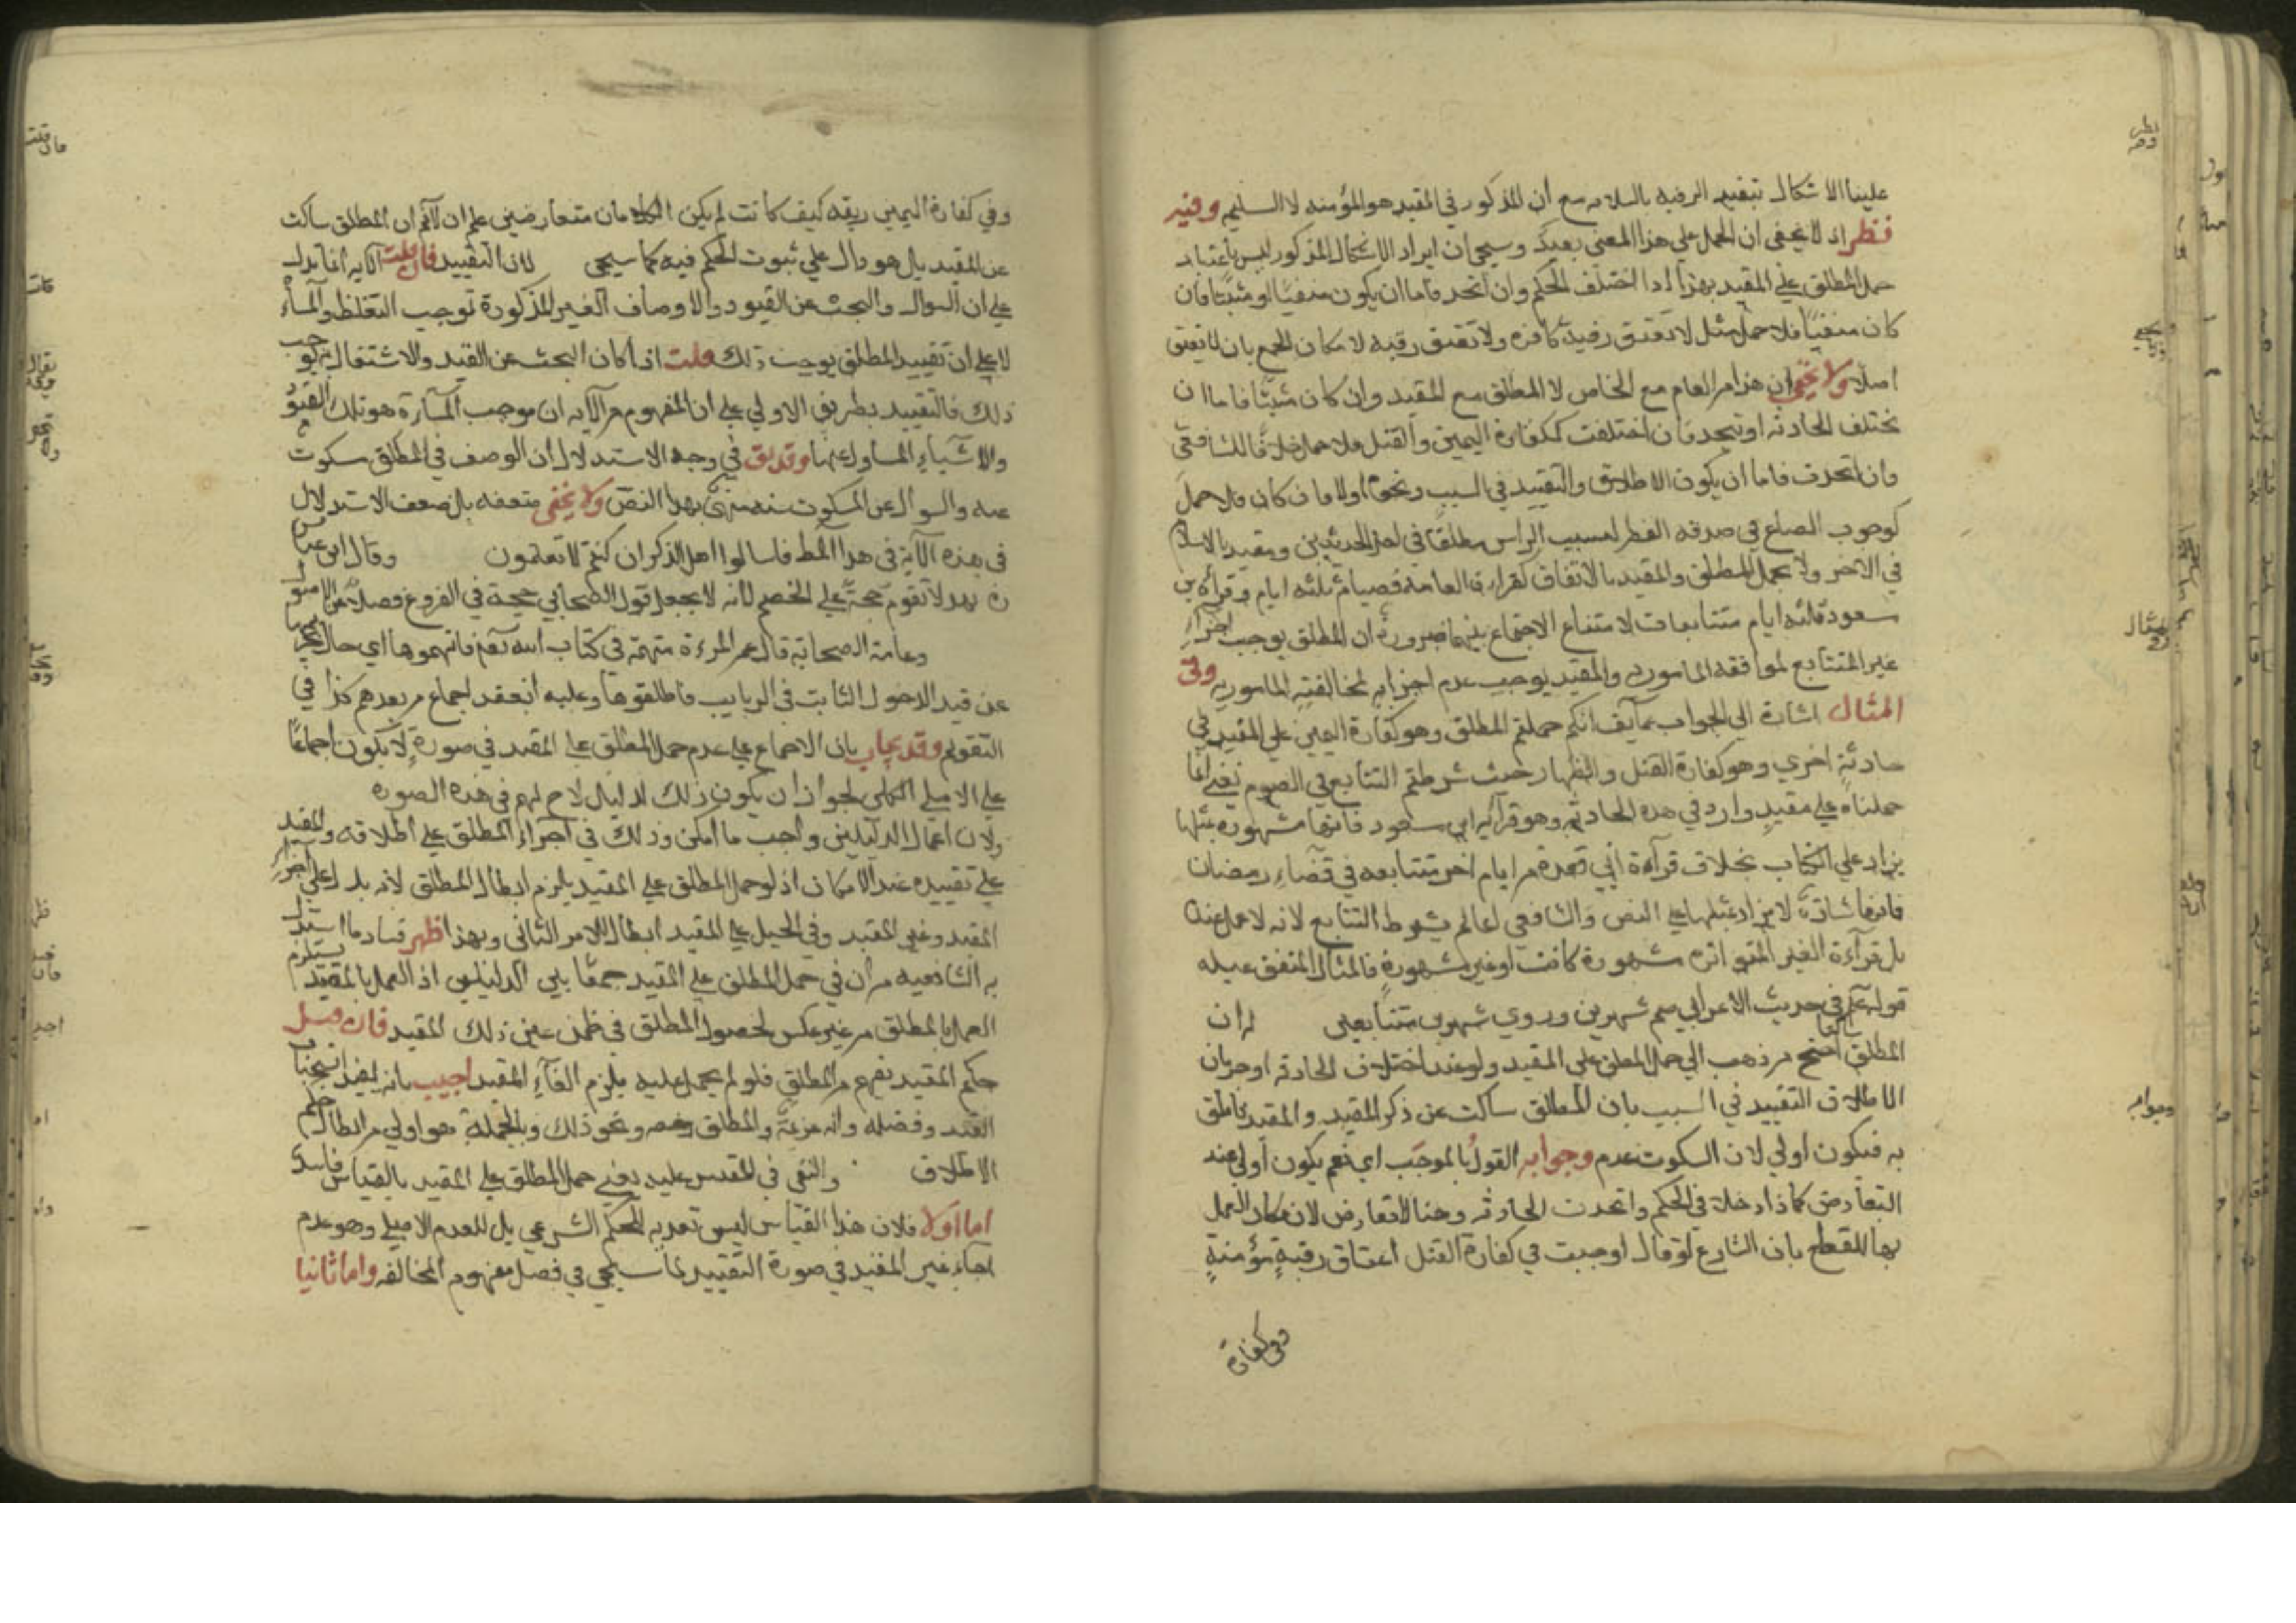 علينا الاشكال بتقييد الرقبة بالسلامة مع أن المذكور في المقيد هو المؤمنة لا السليمة وفيه
نظر اذ لا يخفى ان الحمل على هذا المعنى بعيد وسيجي ان ايراد الاشكال المذكور ليس باعتبار
حمل المطلق على المقيد بهذا اذا اختلف الحكم وان اتحد فاما ان يكون منفيا او مثبتا فان
كان منفيا فلا حمل مثل لا تعتق رقبة كافرة ولا تعتق رقبة لامكان الجمع بان لا يعتق
اصلا ولا يخفى ان هذا من العام مع الخاص لا المطلق مع المقيد وان كان مثبتا فاما ان
تختلف الحادثة او تتحد فان اختلفت ككفارة اليمين والقتل فلا حمل خلافا للشافعي
وان اتحدت فاما ان يكون الاطلاق والتقييد في السبب ونحوه اولا فان كان فلا حمل
كوجوب الصاع في صدقة الفطر لسبب الراس مطلقا في احد الحديثين ومقيدا بالاسلام
في الاخر ولا يحمل المطلق والمقيد بالاتفاق كقراءة العامة فصيام ثلثة ايام وقرأة بن
سعود ثلثة ايام متتابعات لامتناع الاجتماع بينهما ضرورة ان المطلق يوجب اجزاء
غير المتتابع لموافقة المامور به والمقيد يوجب عدم اجزايه لمخالفته المامور به وفي
المثال اشارة الى الجواب عما يقال انكم حملتم المطلق وهو كفارة اليمين على المقيد في
حادثة اخري وهو كفارة القتل والظهار حيث شرطتم التتابع في الصوم يعني انما
حملناه على مقيد وارد في هذه الحادثة وهو قرآءة ابن سعود فانها مشهورة بمثلها
يزاد على الكتاب بخلاف قرآءة أبي فعدة من ايام اخر متتابعة في قضاء رمضان
فانها شاذة لا يزاد بمثلها على النص والشافعي انما لم يشرط التتابع لانه لا عمل عنده
بل قرآءة الغير المتواترة مشهورة كانت او غير مشهورة فالمثال المتفق عليه
قوله عم في حديث الاعرابي صم شهرين وروي شهرين متتابعين لان
المطلق احتج من ذهب الي حمل المطلق على المقيد ولو عند اختلاف الحادثة او جريان
الاطلاق التقييد في السبب بان المطلق ساكت عن ذكر المقيد والمقيد ناطق
به فيكون اولي لان السكوت عدم وجوابه القول بالموجب اي نعم يكون أولي عند
التعارض كما اذا دخلا في الحكم واتحدت الحادثة وهنا لا تعارض لامكان العمل
بها للقطع بان الشارع لو قال اوجبت في كفارة القتل اعتاق رقبة مؤمنة
وفي كفارة
وفي كفارة اليمين رقبة كيف كانت لم يكن الكلامان متعارضين على ان لا نم ان المطلق ساكت
عن المقيد بل هو دال على ثبوت الحكم فيه كما سيجي لان التقييد فان قلت الآية انما تدل
على ان السوال والبحث عن القيود والاوصاف الغير المذكورة توجب التغليظ والمساءة
لا على ان تقييد المطلق يوجب ذلك قلت اذا كان البحث عن القيد والاشتغال به يوجب
ذلك فالتقييد بطريق الاولي على ان المفهوم من الآية ان موجب المسآءة هو تلك القيود
والاشياء المسئول عنها وقد يق في وجه الاستدلال أن الوصف في المطلق سكوت
عنه والسوال عن المسكوت عنه منهي بهذا النص ولا يخفى ضعفه بل ضعف الاستدلال
في هذه الآية في هذا المط فاسالوا اهل الذكر ان كنتم لا تعلمون وقال ابن عباس
ره بهذا لا تقوم حجة على الخصم لأنه لا يجعل قول الصحابي حجة في الفروع فضلا عن الاصول
وعامة الصحابة قال عمر المرءة مبهمة في كتاب الله تعم فابهموها اي خال تحريمها
عن قيد الدخول الثابت في الربايب فاطلقوها وعليه انعقد اجماع من بعدهم كذا في
التقويم وقد يجاب بان الاجماع على عدم حمل المطلق على المقيد في صورة لا يكون اجماعا
على الاصل الكلي لجواز ان يكون ذلك لدليل لاح لهم في هذه الصورة
ولان اعمال الدليلين واجب ما امكن وذلك في اجراء المطلق على اطلاقه والمقيد
على تقييده عند الامكان اذ لو حمل المطلق على المقيد يلزم ابطال المطلق لانه يدل على اجزاء
المقيد وغير المقيد وفي الحمل على المقيد ابطال للامر الثاني وبهذا ظهر فساد ما استدل
به الشافعية من ان في حمل المطلق على المقيد جمعا بين الدليلين اذ العمل بالمقيد يستلزم
العمل بالمطلق من غير عكس لحصول المطلق في ضمن عين ذلك المقيد فان قيل
حكم المقيد يفهم من المطلق فلو لم يحمل عليه يلزم الغآء المقيد اجيب بانه يفيد استحباب
القيد وفضله وانه عزيمة والمطلق رخصة ونحو ذلك وبالجملة هو اولي من ابطال حكم
الاطلاق والنفي في المقيس عليه يعني حمل المطلق على المقيد بالقياس فاسد
اما اولا فلان هذا القياس ليس تعدية للحكم الشرعي بل للعدم الاصلي وهو عدم
اجزاء غير المقيد في صورة التقييد لما سيجي في فصل مفهوم المخالفة واما ثانيا